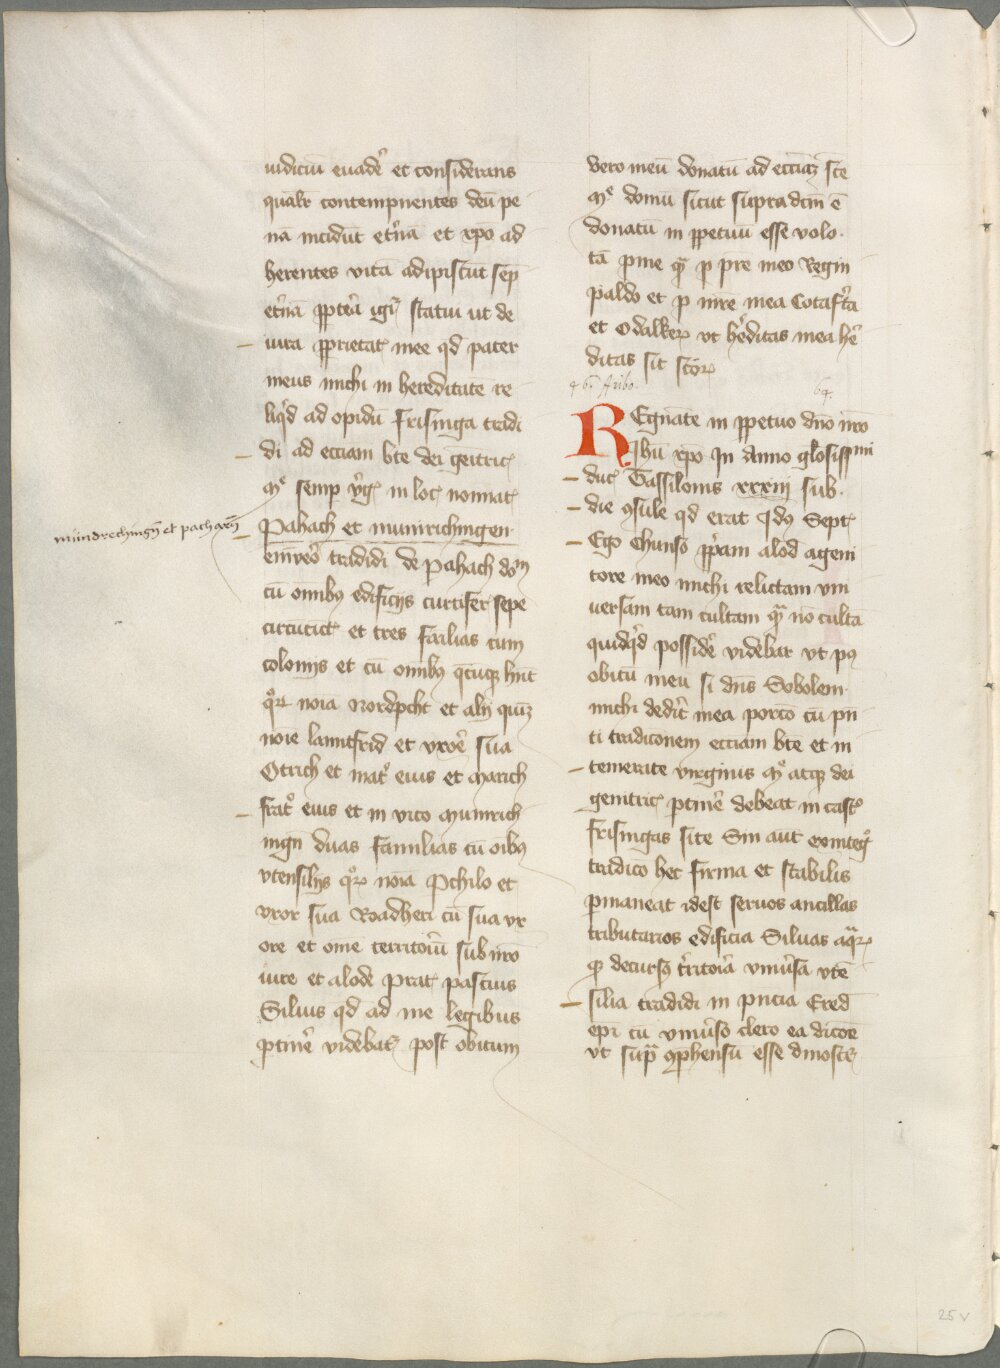 iudiciū euadē et considerans
qualr̄ contempnentes deū pe
nā incidūt et̄nā et xp̄o ad
herentes vitā adipiscūt sēp
et̄nā ꝓpt̄ea igr̄ statui ut de
iura ꝓprietat̄ mee qd pater
meus michi in hereditate re
liqͥd ad opidū frisinga tradi
di ad eccīam bt̄e dei genitric̄
Mͤ semp v̄gꝭ in locꝭ nōinat̄
Pahach et munirichingen
mūndrechingn̄ et pachaen̄
einveō tradidi de pahach dom̄
cū om̄ibꝰ edificijs curtifer̄ sepe
circūcīct̄ et tres fāilias cum
colonijs et cū om̄ibꝰ qͣcūqꝫ hn̄t
qͦꝝ noīa Nordpcht et alij quiꝫ
noīe lanntfrid et vxorē sua
Otrich et mat̄ eius et Marich
frat̄ eius et in vico Munirich
ingn̄ duas familias cū oībꝰ
vtensilijs qͦꝝ noīa Pchilo et
vxor sua Roadheri cū sua vx
ore et om̄e territoriū sub nr̄o
iure et alode Prat̄ pascuis
Siluis qd ad me legibus
ptinē videbat̄ post obitum
vero meū donatū ad eccīaꝫ sc̄e
Mͤ domū sicut supradc̄m ē
donatū in ꝑpetuū esse volo
tā ꝑ me qͣ̄ ꝑ pr̄e meo Regin
paldo et ꝑ mr̄e mea Cotafꝛ̄ta
et Odalkeꝝ vt h̄editas mea h̄e
ditas sit sc̄oꝝ
46. Aribo. 64.
REgnāte in ꝑpetuo dn̄o nr̄o
Ihū xp̄o In Anno glōsissimi
ducꝭ Tassilonis xxxiij sub
die ꝯsule qd erat Idꝰ Septꝭ
Ego Chunso ꝓp̄am alod̄ ageni
tore meo michi relictam vni
uersam tam cultam qͣ̄ nō cultā
quidqͥd possidē videbar vt pꝰ
obitū meū si dn̄s Sobolem
michi dedit̄ mea porc̄o cū pn̄
ti tradic̄onem eccīam bt̄e et in
temerate virginis Mͤ atqꝫ dei
genitricꝭ ptinē debeat in cast̄
frisingas site Sin aut̄ exinteg̊
tradic̄o hec firma et stabilis
ꝑmaneat idest seruos ancillas
tributarios edificia Siluas aqͣꝝ
qꝫ decursꝰ t̄ritoīa vniūsa vtē
silia tradidi in pn̄cia Ered̄
epī cū vniūso clero ea dic̄oe
vt supͣ ꝯphensū esse dinoscꝭ
25 v